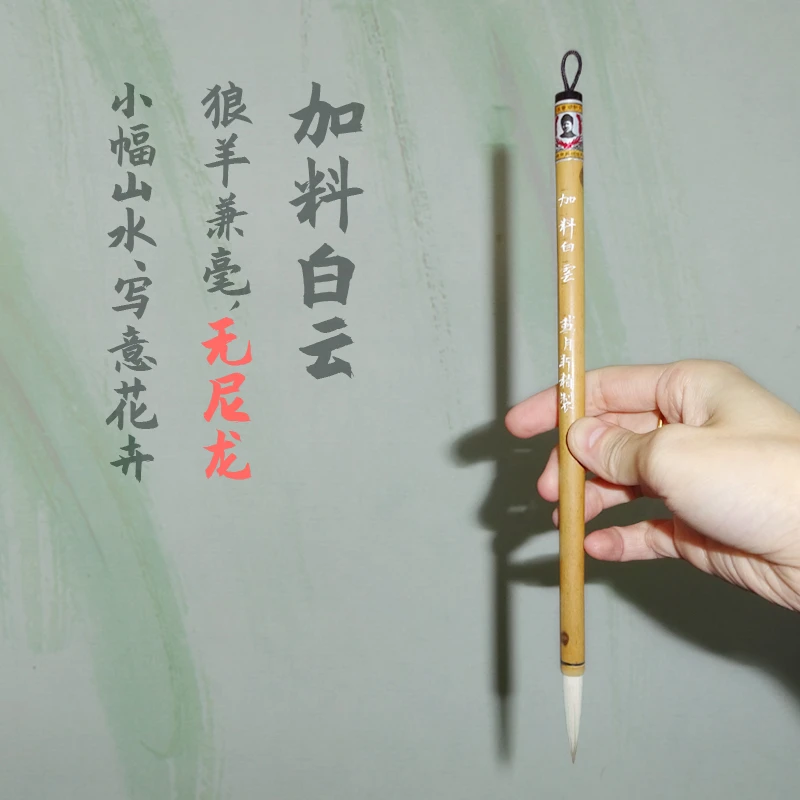 加料白云
狼羊兼毫,无尼龙
小幅山水、写意花卉
加料白雲
戴月軒精製